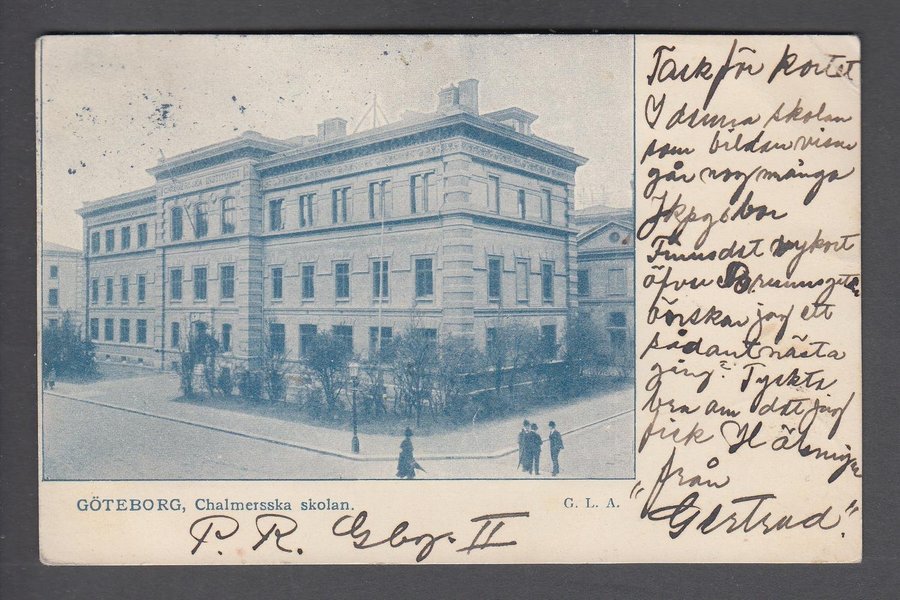 Tack för kortet
I denna skolan
som bilden visar
går nog många
Jkpgsbor
Finns det vykort
öfver Brunnsgatan
önskar jag ett
sådant nästa
gång. Tyckte
bra om det jag
fick Hälsningar
från
"Gertrud".
GÖTEBORG, Chalmersska skolan.
G. L. A.
P. R. Gbg. II